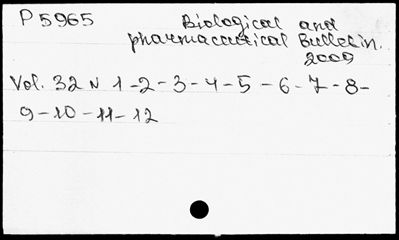 P 5965
Biological and
pharmaceutical Bulletin.
2009
Vol. 32 N 1-2-3-4-5-6-7-8-
9-10-11-12